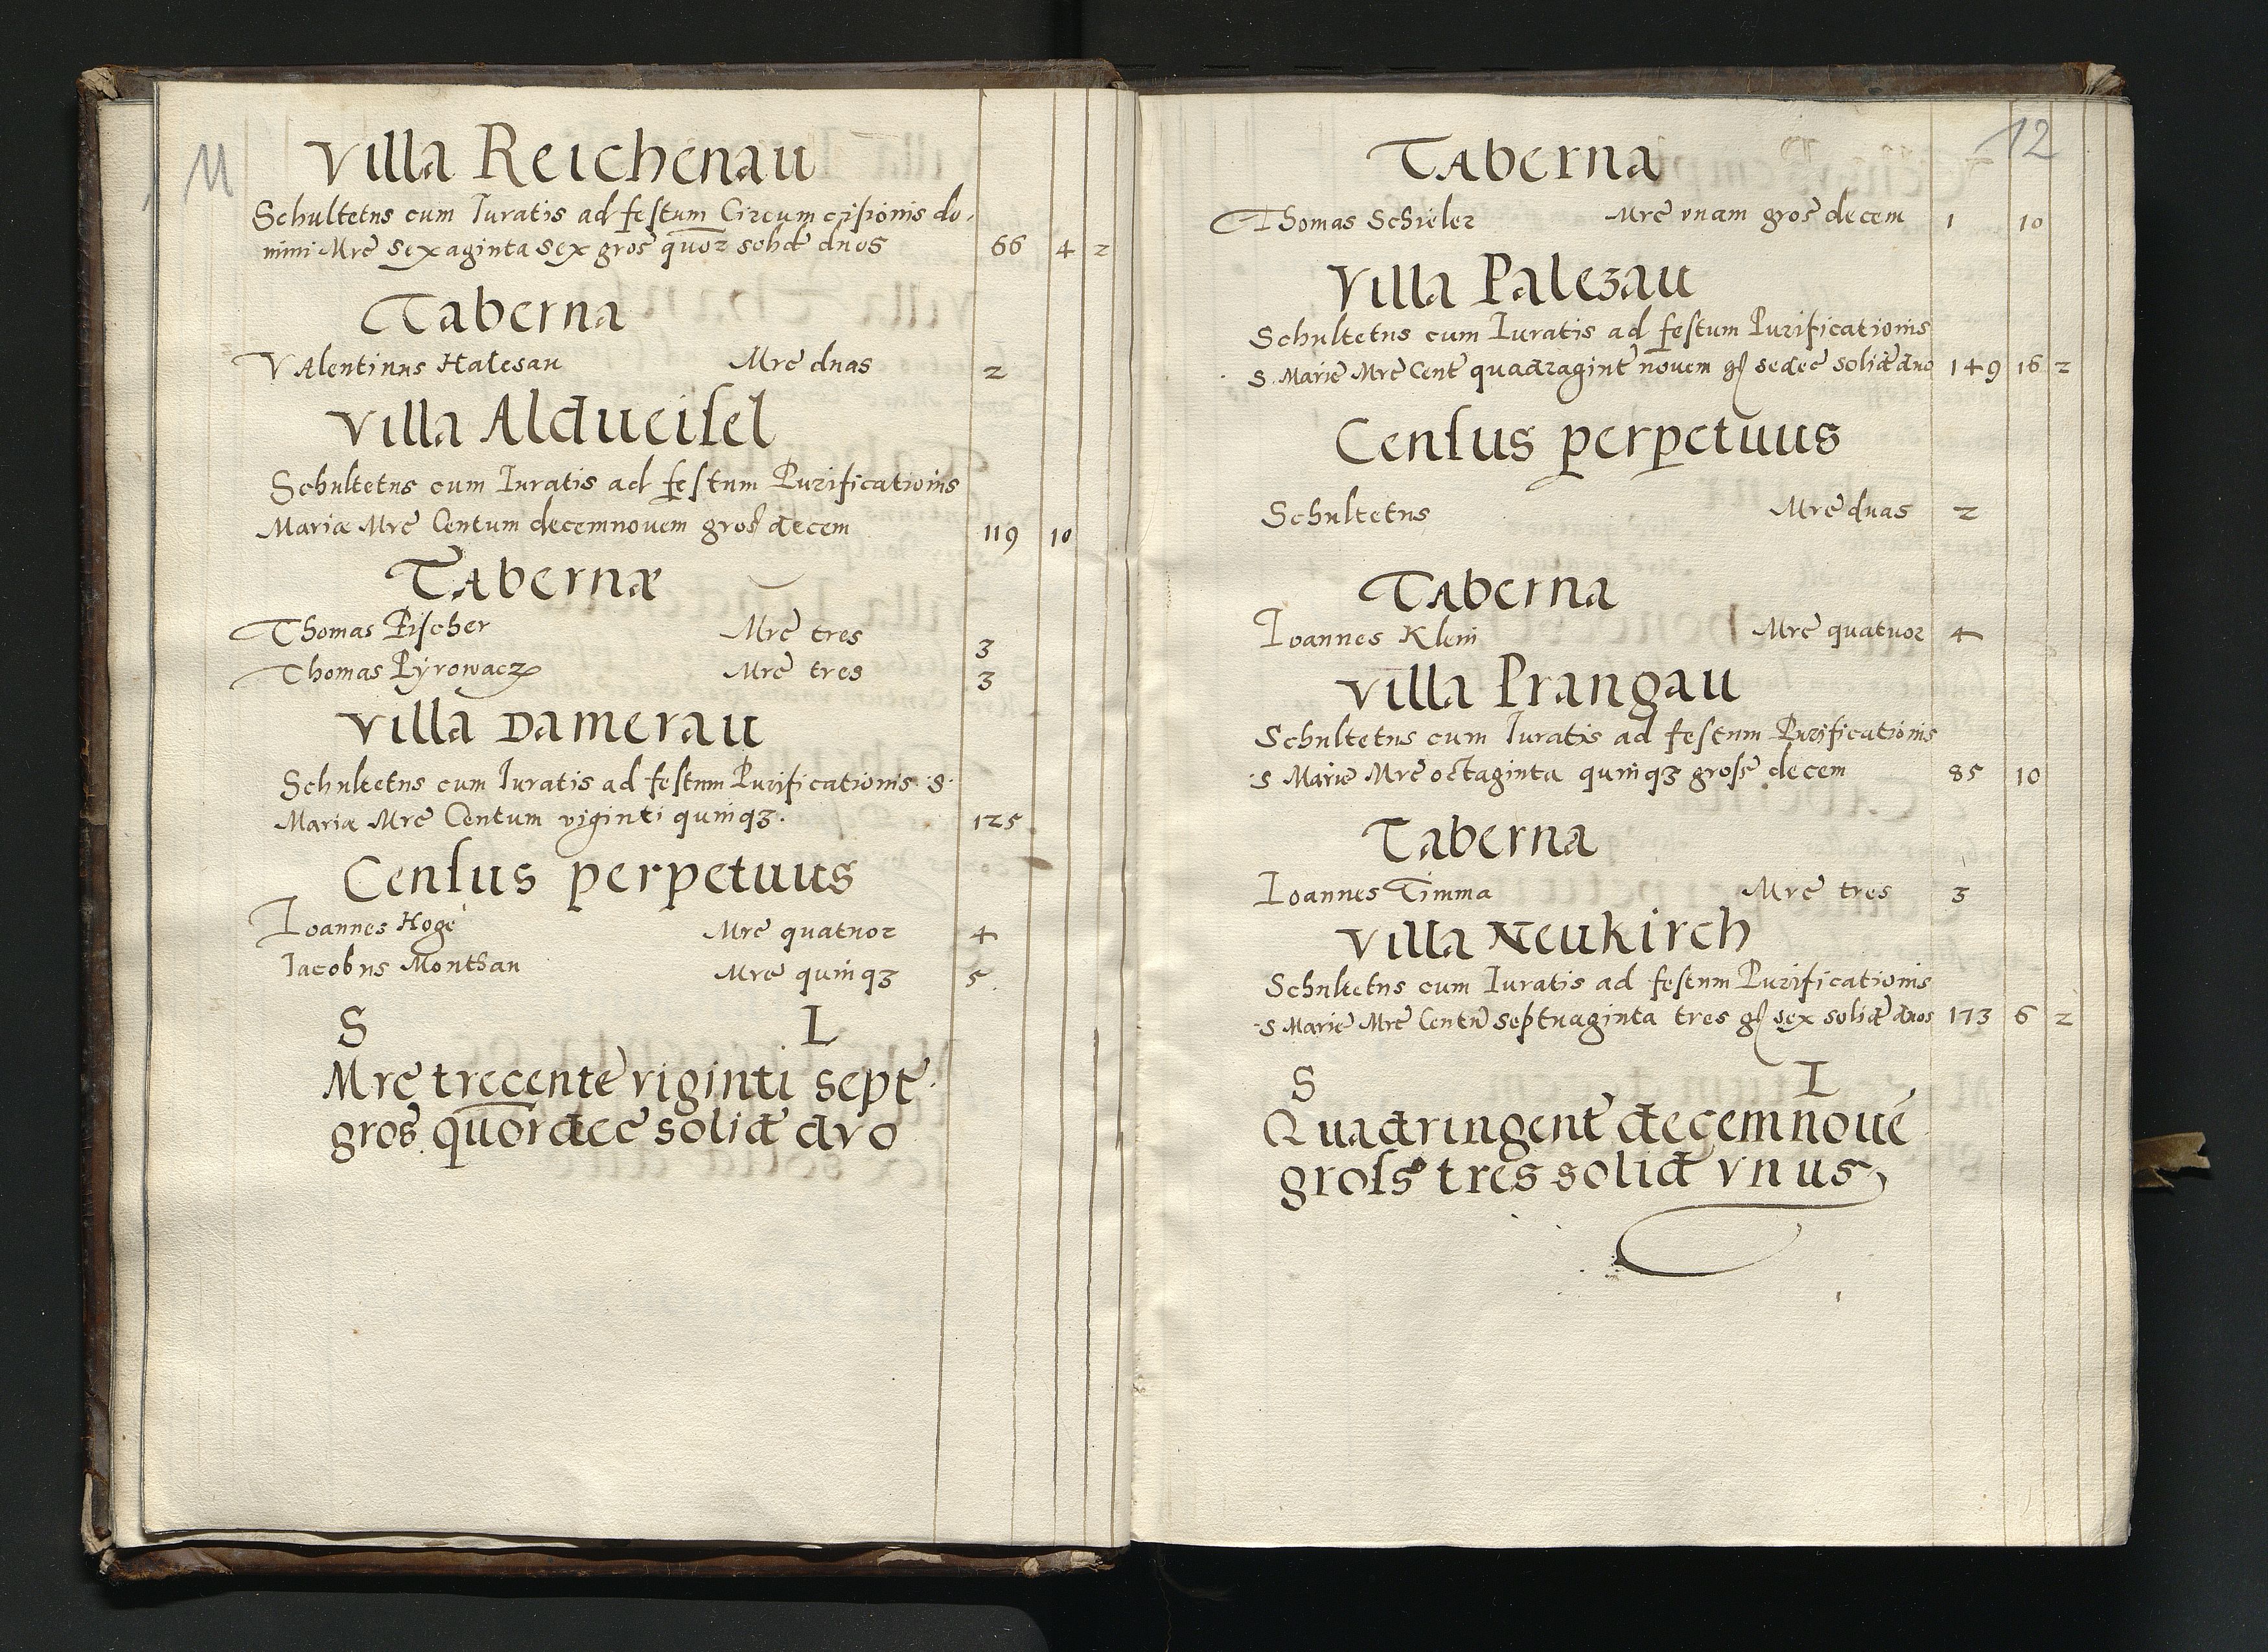 11
Villa Reichenau
Schultetus cum Iuratis ad festum Circumcisionis do-
mini Mrc sexaginta sex gros quor solid duos 66 4 2
Taberna
Valentinus Halesau Mrc duas 2
Villa Aldueisel
Schultetus cum Iuratis ad festum Purificationis
Mariæ Mrc Centum decemnouem gros decem 119 10
Tabernæ
Thomas Pischer Mrc tres 3
Thomas Pÿrowacz Mrc tres 3
Villa Damerau
Schultetus cum Iuratis ad festum Purificationis S
Mariæ Mrc Centum viginti quinqз. 125
Census perpetuus
Ioannes Hoge Mrc quatuor 4
Iacobus Monthau Mrc quinqз 5
S L
Mrc trecente viginti sept
gros quordec solid duo
12
Taberna
Thomas Schieler Mrc vnam gros decem 1 10
Villa Palezau
Schultetus cum Iuratis ad festum Purificationis
S. Marie Mrc Cent quadragint novem gſ sedec solid duo 149 16 2
Census perpetuus
Schultetus Mrc duas 2
Taberna
Ioannes Klein Mrc quatuor 4
Villa Prangau
Schultetus cum Iuratis ad festum Purificationis
S Marie Mrc octaginta quinqз gross decem 85 10
Taberna
Ioannes Timma Mrc tres 3
Villa Neukirch
Schultetus cum Iuratis ad festum Purificationis
S Marie Mrc Centu septuaginta tres gſ sex solid duos 173 6 2
S L
Quadringent decemnoue
gross tres solid vnus